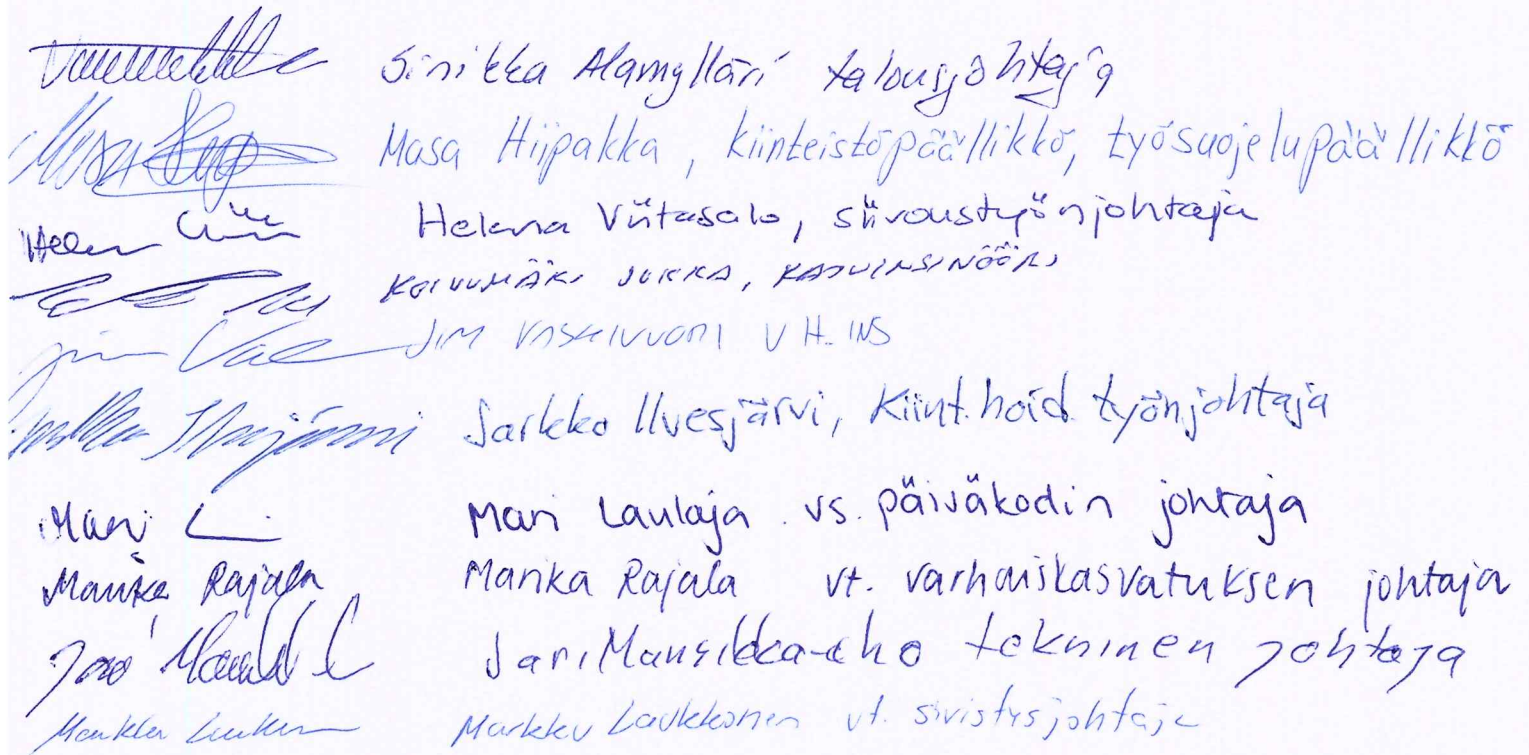 Sinikka Alamylläri talousjohtaja
Masa Hiipakka, kiinteistöpäällikkö, työsuojelupäällikkö
Helena Viitasalo, siivoustyönjohtaja
KOIVUMÄKI JUKKA, KADUNINSINÖÖRI
JIM VH. INS
Jarkko Ilvesjärvi, Kiint.hoid. työnjohtaja
Mari Mari Laulaja vs. päiväkodin johtaja
Marika Rajala Marika Rajala vt. varhaiskasvatuksen johtaja
Jari Jari Mansikka-aho tekninen johtaja
Markku Laukkonen vt. sivistysjohtaja